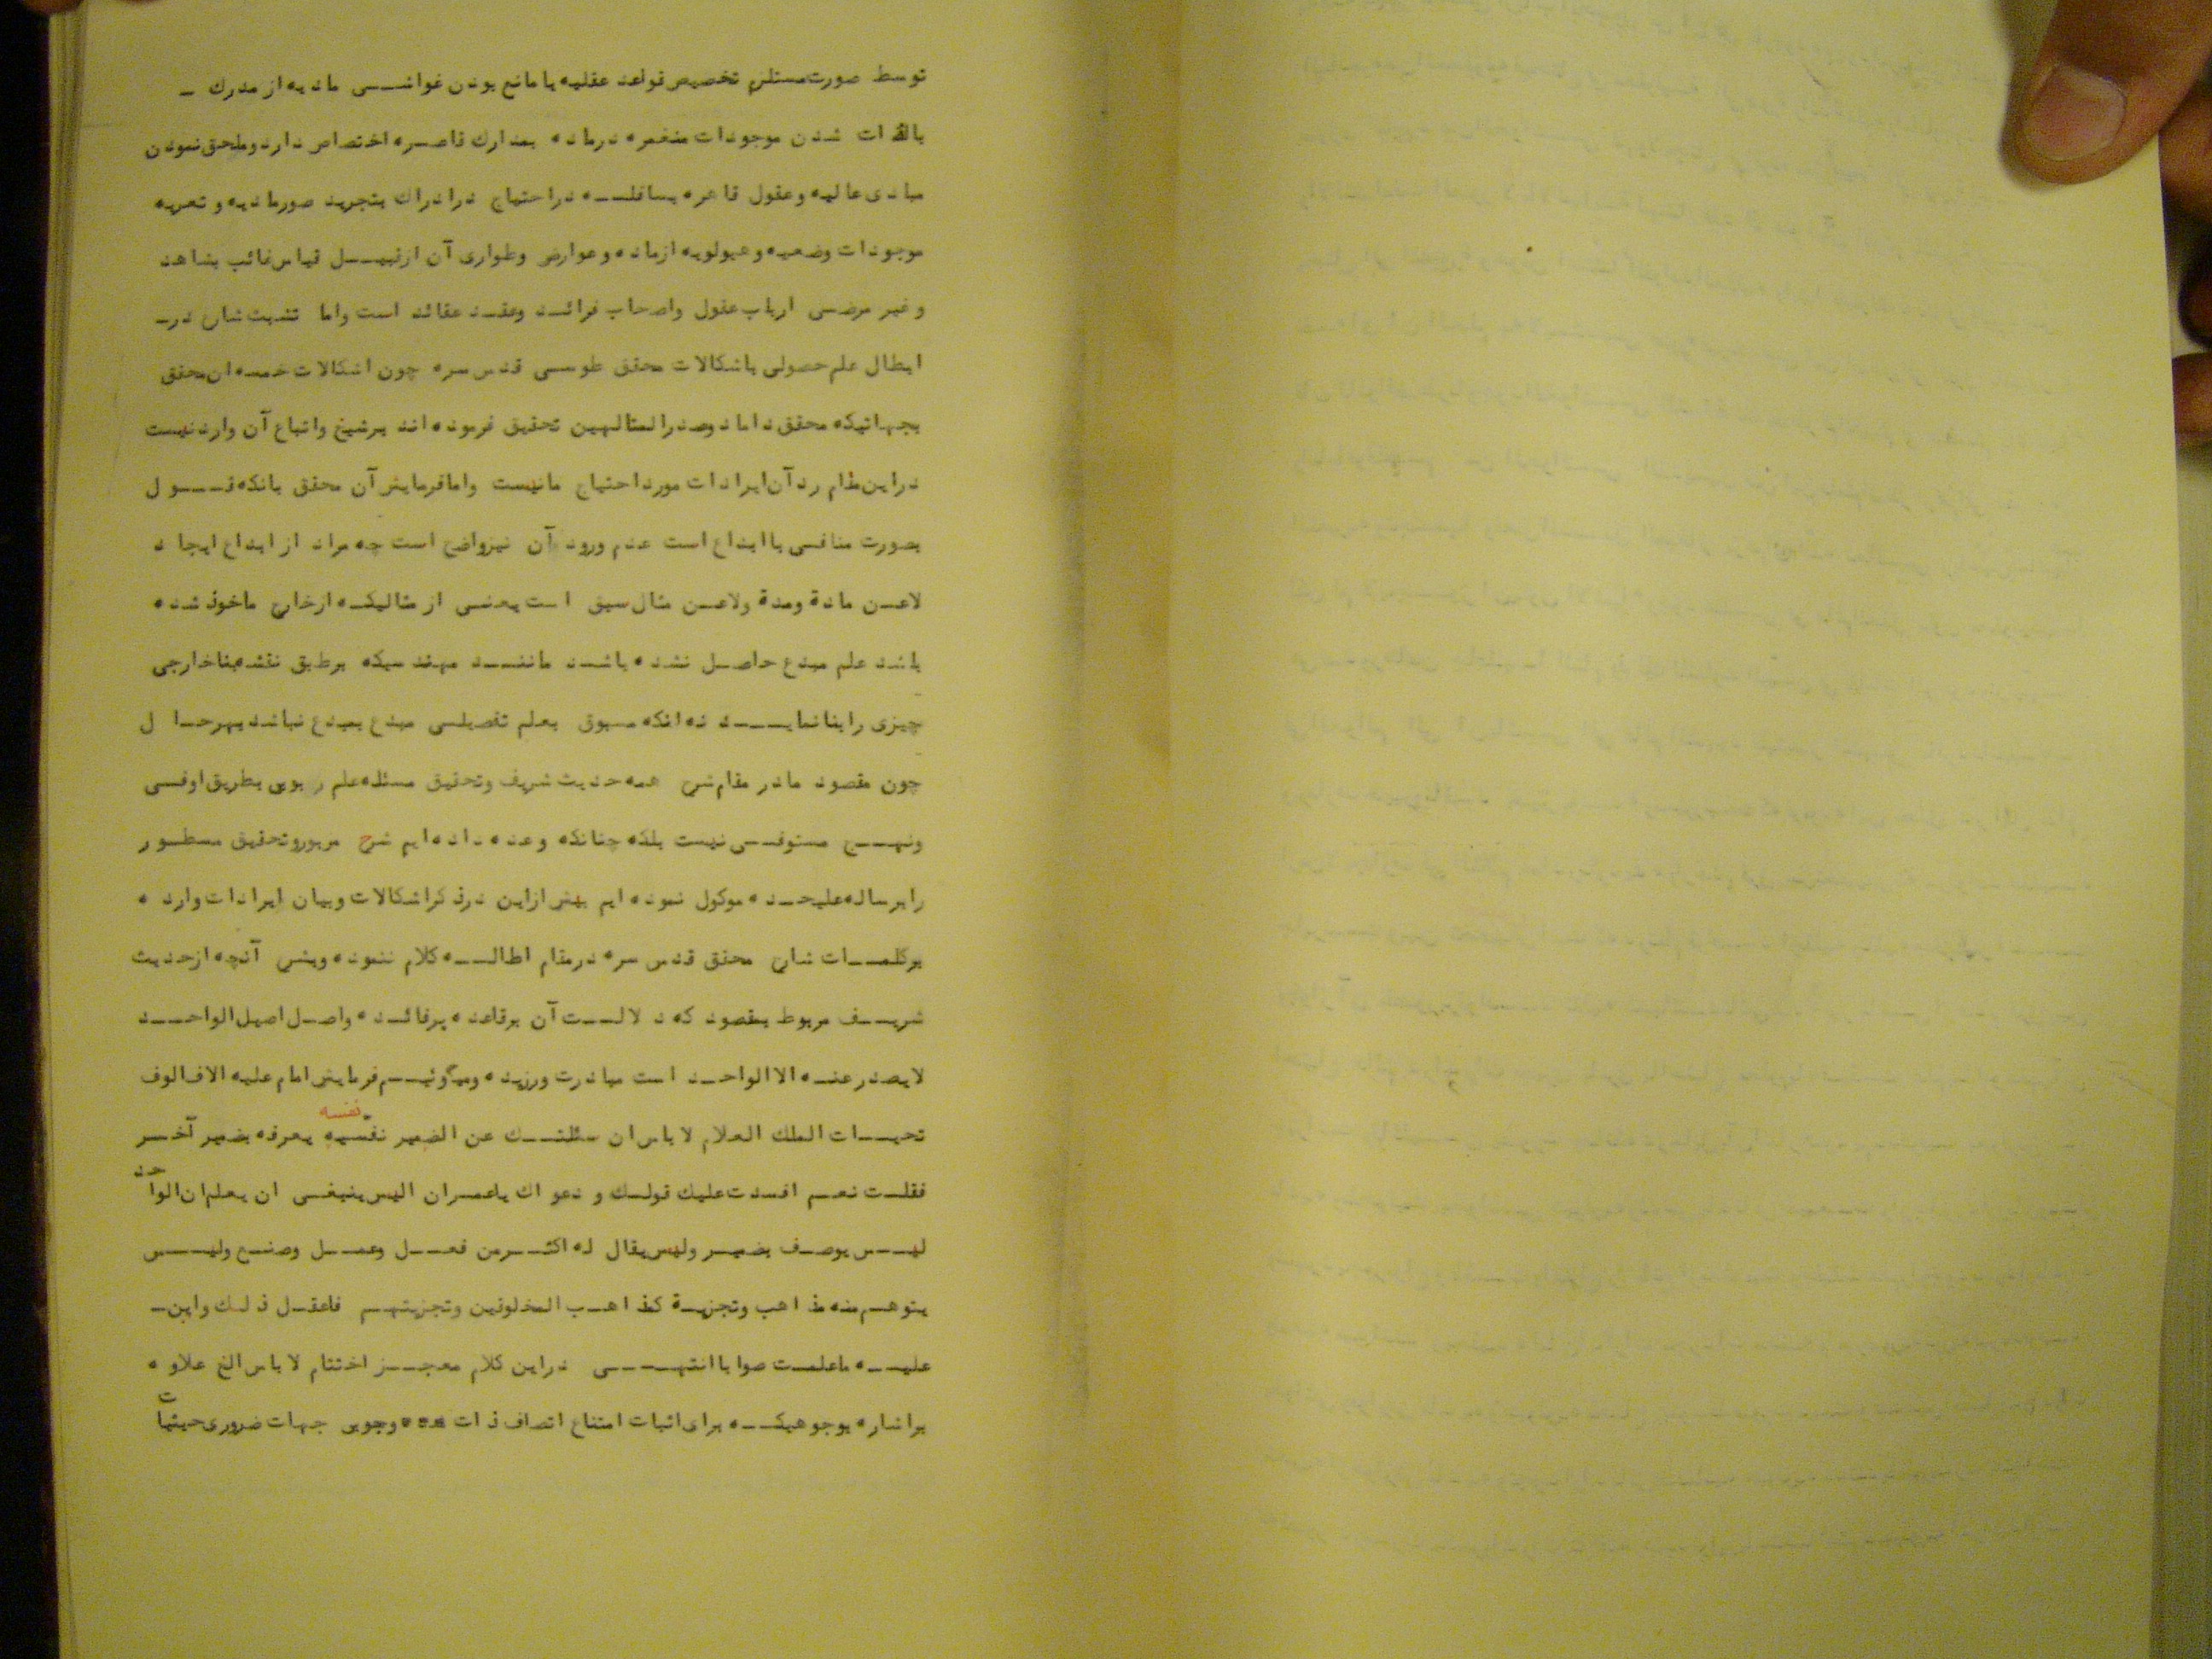 توسط صورت مستلزم تخصیص قواعد عقلیه یا مانع بودن غواشی مادیه از مدرك ـ
بالذات شدن موجودات منغمره درماده بمدارك قاصره اختصاص دارد وملحق نمودن
مبادی عالیه وعقول قاهره بسافلـه دراحتیاج درادراك بتجرید صورمادیه و تعریه
موجودات وضعیه وهیولویه ازماده وعوارض وطواری آن ازقبیـل قیاس غائب بشاهد
وغیر مرضی ارباب عقول واصحاب فرائـد وعقـد عقائد است واما تشبث شارح درـ
ابطال علم حصولی باشکالات محقق طوسی قدس سره چون اشکالات خمسه ان محقق
بجهاتیکه محقق داماد وصدرالمتالهین تحقیق فرموده اند برشیخ واتباع آن وارد نیست
دراین مقام رد آن ایرادات مورد احتیاج مانیست واما فرمایش آن محقق بانکه قـول
بصورت منافی با ابداع است عدم ورود آن نیزواضح است چه مراد از ابداع ایجاد
لاعـن مادة ومدة ولاعـن مثال سبق است یعنـی از مثالیکـه ازخارج ماخوذ شده
باشد علم مبدع حاصـل نشده باشـد ماننـد مهندسیکه برطبق نقشه بناخارجی
چیزی رابنانمایـد نه انکه مسبوق بعلم تفصیلـی مبدع بمبدع نباشد بهرحـال
چون مقصود مادر مقام شرح همه حدیث شریف وتحقیق مسئله علم ربوبی بطریق اوفـی
ونهـج مستوفـی نیست بلکه چنانکه وعده داده ایم شرح مزبوروتحقیق مسطـور
رابرساله علیحـده موکول نموده ایم بیش ازاین درذکراشکالات وبیان ایرادات وارده
برکلمـات شارح محقق قدس سره درمقام اطالـه کلام ننموده وبشرح آنچه ازحدیث
شریـف مربوط بمقصود که دلالـت آن برقاعده پرفائـده واصـل اصیل الواحـد
لایصدر عنـه الا الواحـد است مبادرت ورزیده ومیگوئیـم فرمایش امام علیه الاف الوف
تحیـات الملك العلام لاباس ان سئلتـك عن الضمیر نفسیه نفسه یعرفه بضمیر آخـر
فقلـت نعـم افسدت علیك قولـك و دعواك یاعمـران الیس ینبغـی ان یعلم ان الواحد
لیـس یوصـف بضمیـر ولیس یقال له اکثـرمن فعـل وعمـل وصنـع ولیـس
یتوهـم منه مذاهب وتجزیـة کمذاهـب المخلوقین وتجزیتهـم فاعقـل ذلـك وابن ـ
علیـه ماعلمـت صوابا انتهـی دراین کلام معجـز اختتام لاباس الخ علاوه
براشاره بوجوهیکـه برای اثبات امتناع اتصاف ذات وجوبی جهات ضروری حیثیات